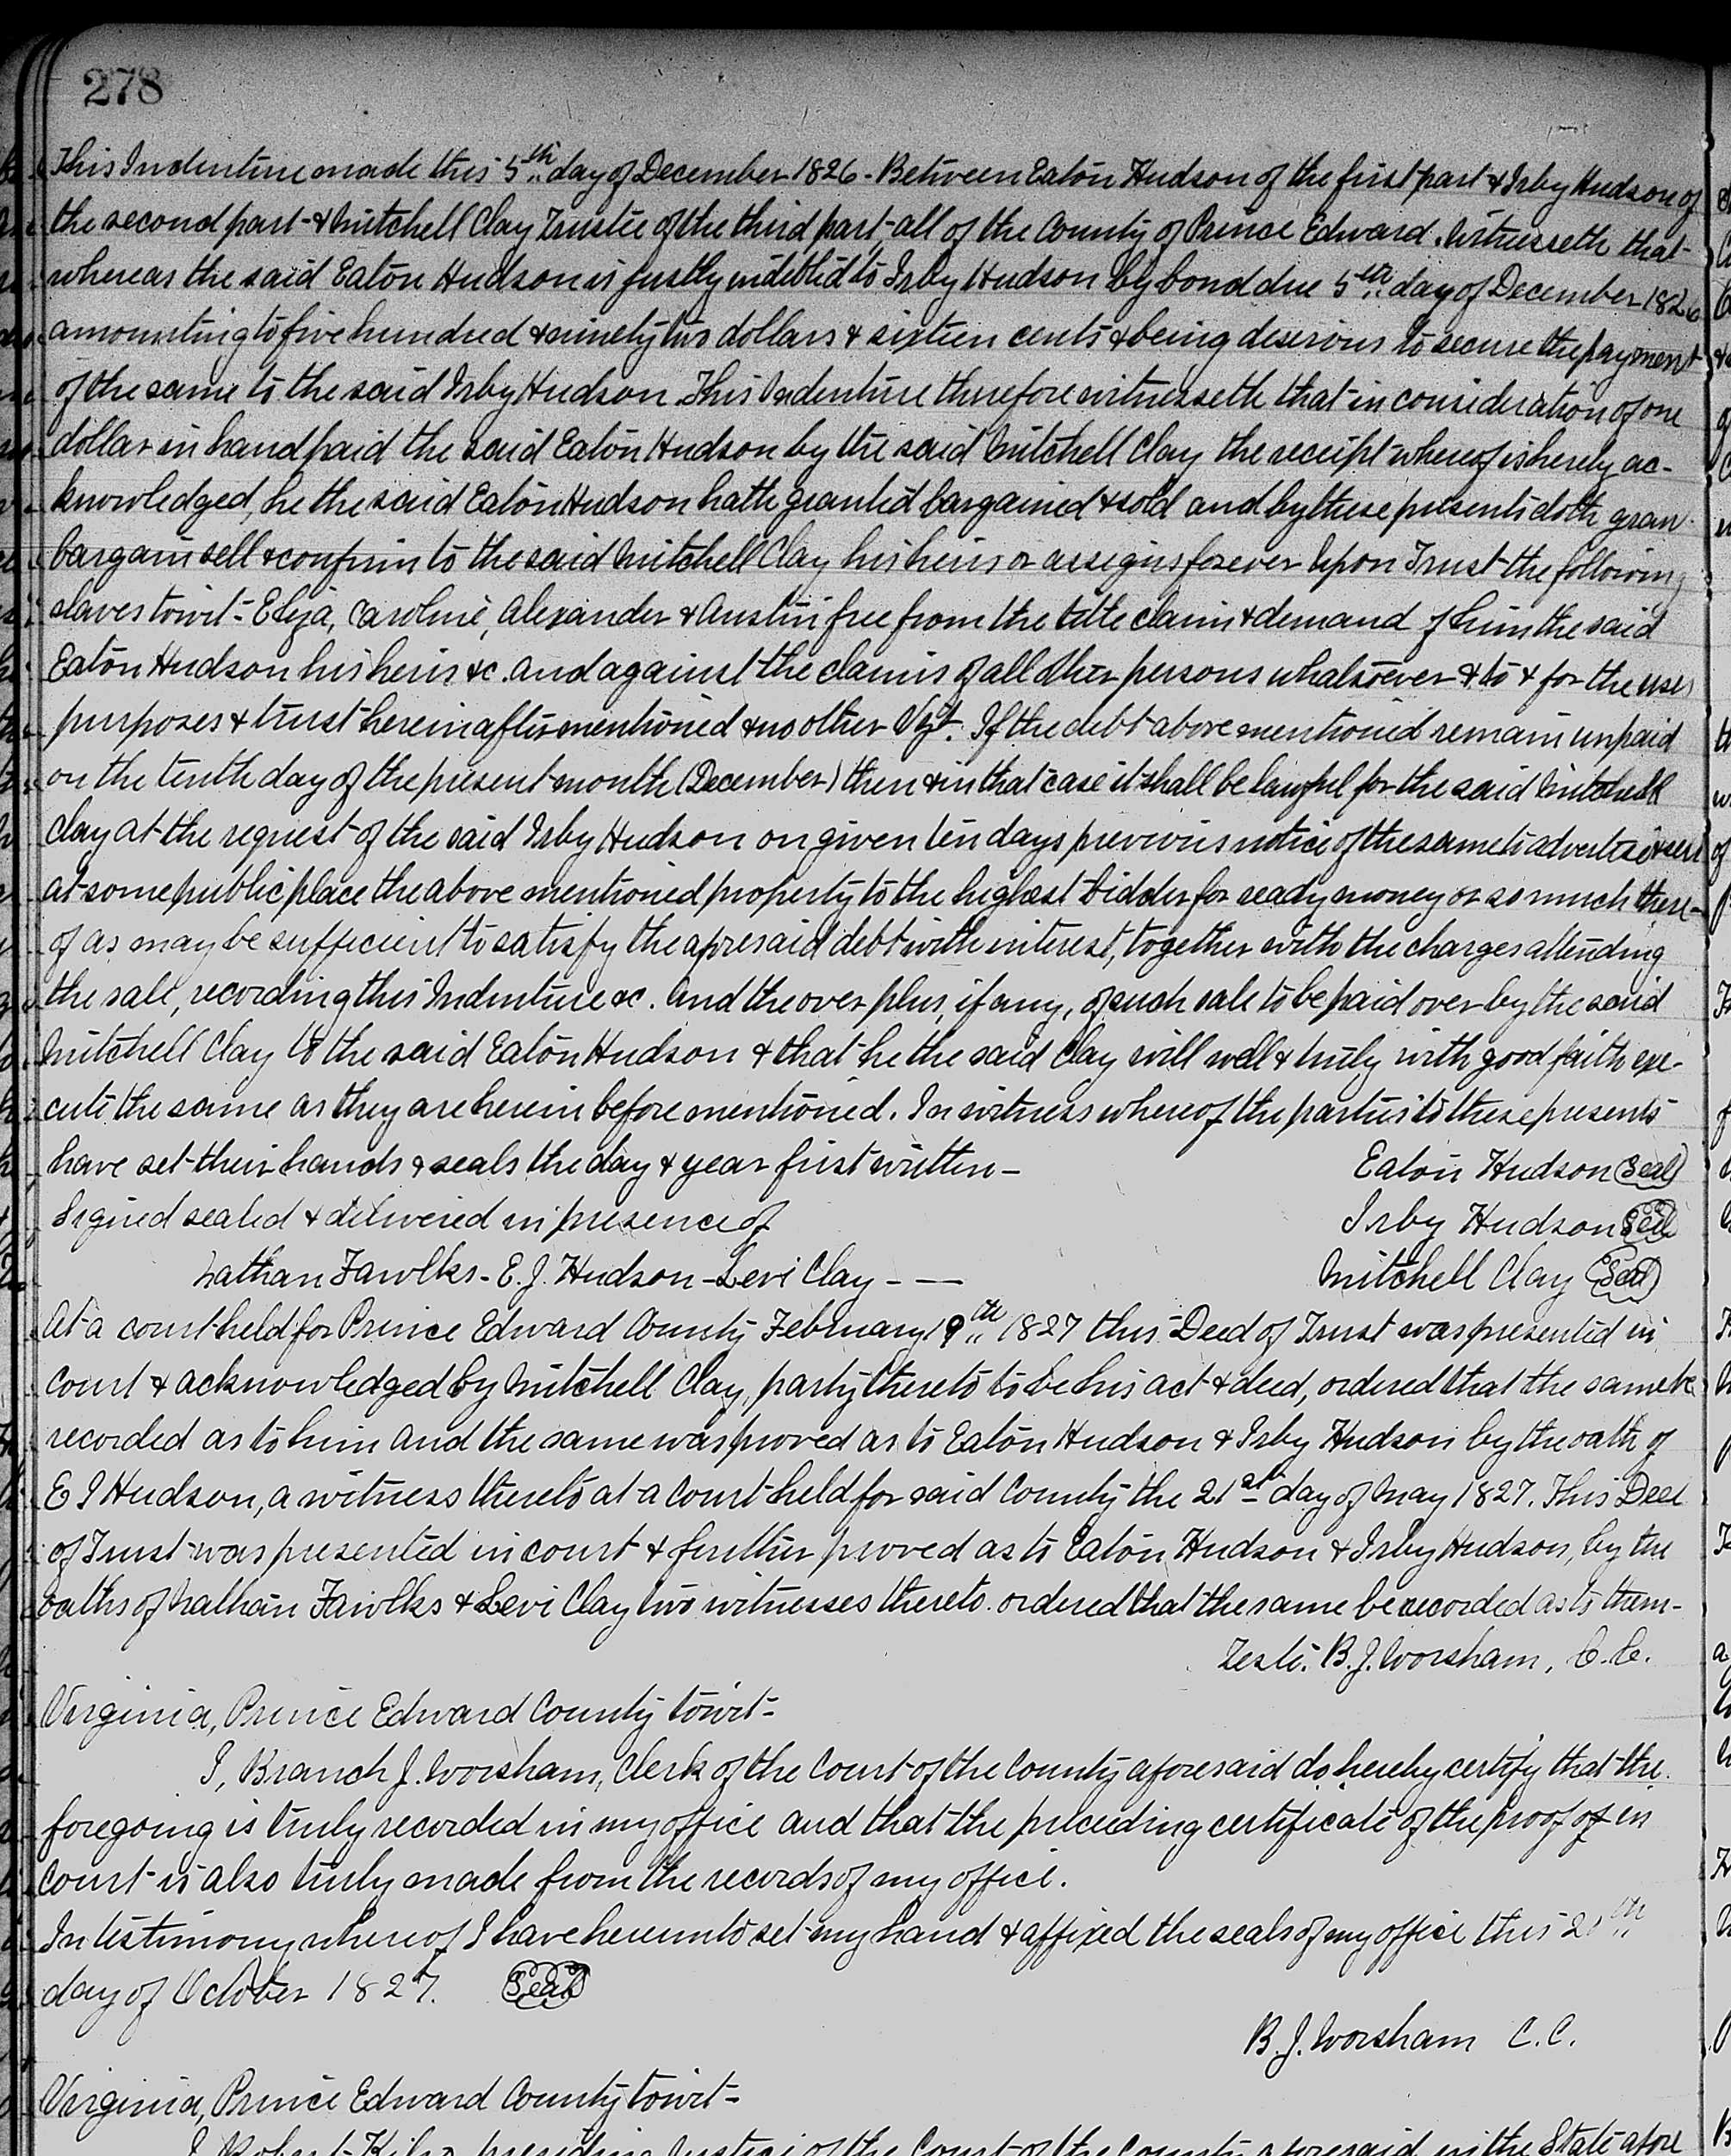 278
This Indenture made this 5th day of December 1826 - Between Eaton Hudson of the first part & Irby Hudson of
the second part & Mitchell Clay Trustee of the third part, all of the County of Prince Edward. Witnesseth that
whereas the said Eaton Hudson is justly indebted to Irby Hudson by bond due 5th day of December 1826
amounting to five hundred & ninety two dollars & sixteen cents & being desirous to secure the payment
of the same to the said Irby Hudson. This Indenture therefore witnesseth that in consideration of one
dollar in hand paid the said Eaton Hudson by the said Mitchell Clay the receipt whereof is hereby ac-
knowledged, he the said Eaton Hudson hath granted bargained & sold and by these presents doth gran
bargain sell & confirm to the said Mitchell Clay his heirs or assigns forever Upon Trust the following
slaves towit - Eliza, Caroline, Alexander & Austin free from the title claim & demand of him the said
Eaton Hudson his heirs &c. and against the claims of all other persons whatsoever & to & for the uses
purposes & trust hereinafter mentioned & no other Vizt. If the debt above mentioned remain unpaid
on the tenth day of the present month (December) then & in that case it shall be lawful for the said Mitchell
Clay at the request of the said Irby Hudson on given ten days previous notice of the same to advertise & sell
at some public place the above mentioned property to the highest bidder for ready money or so much there-
of as may be sufficient to satisfy the aforesaid debt with interest, together with the charges attending
the sale, recording this Indenture &c. And the over plus, if any, of such sale to be paid over by the said
Mitchell Clay to the said Eaton Hudson & that he the said Clay will well & truly with good faith exe-
cute the same as they are herein before mentioned. In witness whereof the parties to these presents
have set their hands & seals the day & year first written - Eaton Hudson (Seal)
Signed sealed & delivered in presence of Irby Hudson (Seal)
Nathan Fawlks - E. J. Hudson - Levi Clay - — Mitchell Clay (Seal)
At a court held for Prince Edward County February 19th 1827 this Deed of Trust was presented in
court & acknowledged by Mitchell Clay, party thereto to be his act & deed, ordered that the same be
recorded as to him and the same was proved as to Eaton Hudson & Irby Hudson by the oath of
E J Hudson, a witness thereto at a court held for said County the 21st day of May 1827. This Deed
of Trust was presented in court & further proved as to Eaton Hudson & Irby Hudson, by the
oaths of Nathan Fawlks & Levi Clay two witnesses thereto. ordered that the same be recorded as to them -
Teste. B. J. Worsham, C. C.
Virginia, Prince Edward County towit -
I, Branch J. Worsham, Clerk of the Court of the County aforesaid do hereby certify that the
foregoing is truly recorded in my office and that the preceeding certificate of the proof of in
court is also truly made from the records of my office.
In testimony whereof I have hereunto set my hand & affixed the seals of my office this
day of October 1827. (Seal)
B. J. Worsham C. C.
Virginia, Prince Edward County towit -
I Robert presiding Justice of the Court of the County aforesaid in the State afore